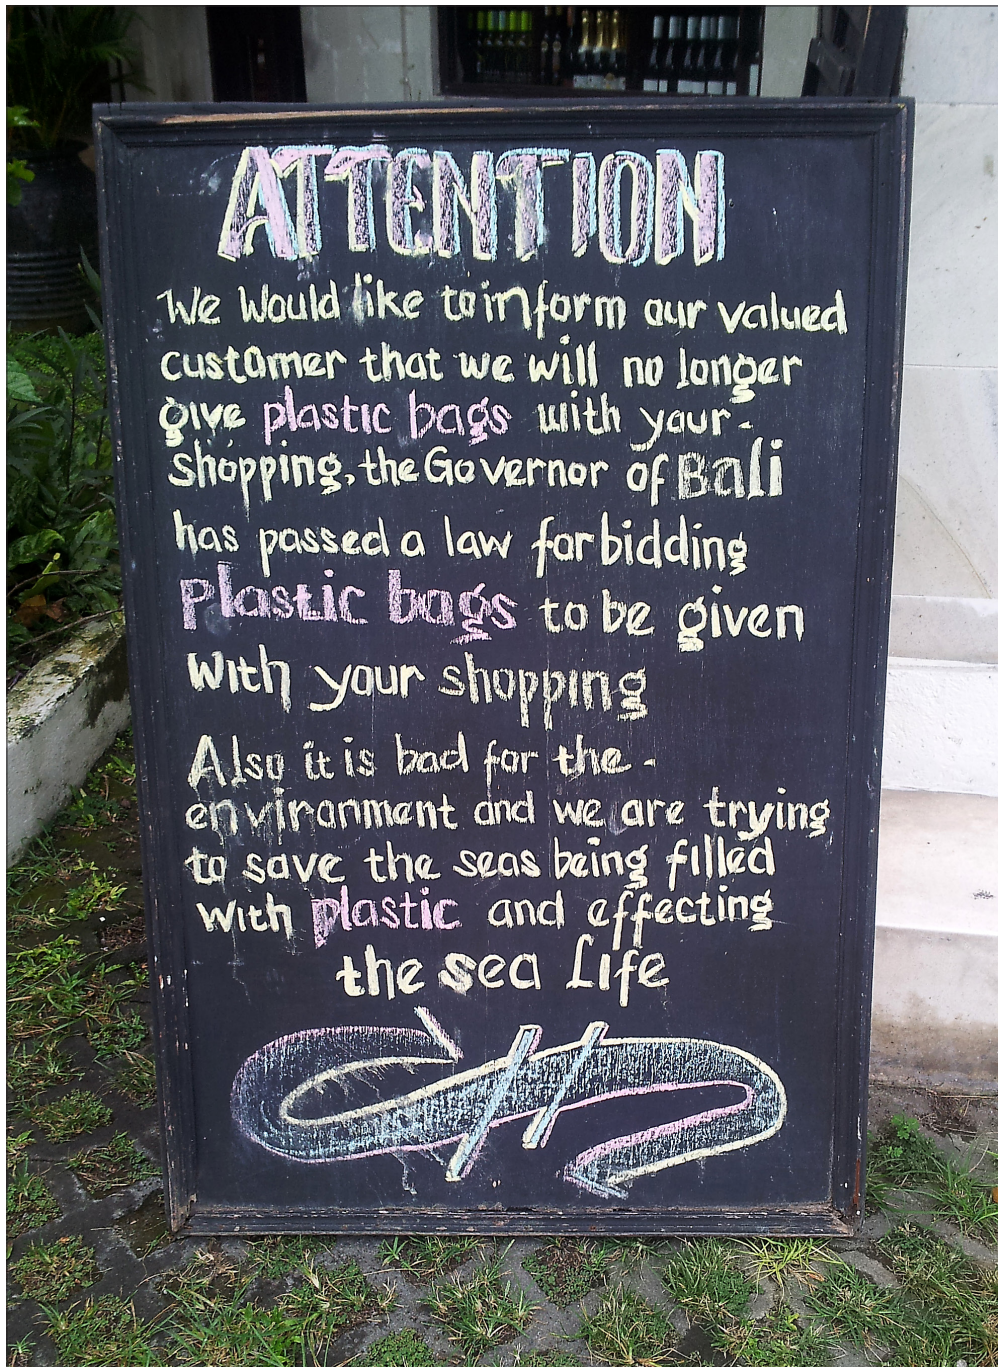 ATTENTION
We Would like to inform our valued
customer that we will no longer
give plastic bags with your-
shopping, the Governor of Bali
has passed a law forbidding
Plastic bags to be given
With your shopping
Also it is bad for the -
environment and we are trying
to save the seas being filled
With plastic and effecting
the sea Life